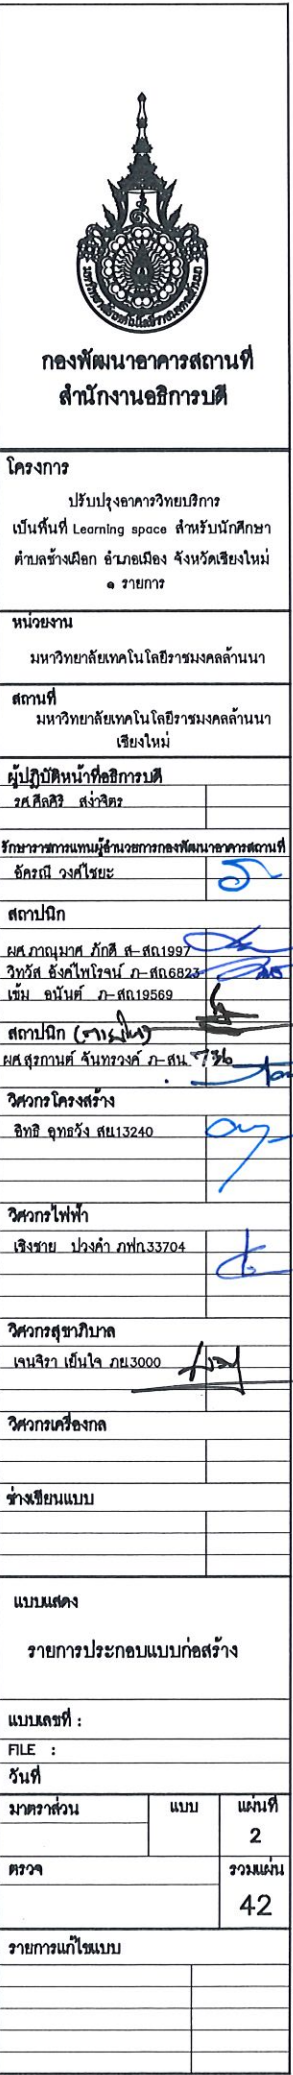 มหาวิทยาลัยเทคโนโลยีราชมงคลล้านนา
กองพัฒนาอาคารสถานที่
สำนักงานอธิการบดี
โครงการ
ปรับปรุงอาคารวิทยบริการ
เป็นพื้นที่ Learning space สำหรับนักศึกษา
ตำบลช้างเผือก อำเภอเมือง จังหวัดเชียงใหม่
๑ รายการ
หน่วยงาน
มหาวิทยาลัยเทคโนโลยีราชมงคลล้านนา
สถานที่
มหาวิทยาลัยเทคโนโลยีราชมงคลล้านนา
เชียงใหม่
ผู้ปฏิบัติหน้าที่อธิการบดี
รศ.ศีลศิริ สง่าจิตร
รักษาราชการแทนผู้อำนวยการกองพัฒนาอาคารสถานที่
อัครณี วงศ์ไชยะ
สถาปนิก
ผศ.ภาณุมาศ ภักดี ส-สถ.1997
วิทวัส อังค์ไพโรจน์ ภ-สถ.6823
เข้ม อนันต์ ภ-สถ.19569
สถาปนิก (ภายใน)
ผศ.สุรกานต์ จันทรวงค์ ภ-สน.
วิศวกรโครงสร้าง
อิทธิ อุทธวัง สย.13240
วิศวกรไฟฟ้า
เชิงชาย ปวงคำ ภฟก.33704
วิศวกรสุขาภิบาล
เจนจิรา เย็นใจ ภย.3000
วิศวกรเครื่องกล
ช่างเขียนแบบ
แบบแสดง
รายการประกอบแบบก่อสร้าง
แบบเลขที่ :
FILE :
วันที่
มาตราส่วน แบบ แผ่นที่
2
ตรวจ รวมแผ่น
42
รายการแก้ไขแบบ